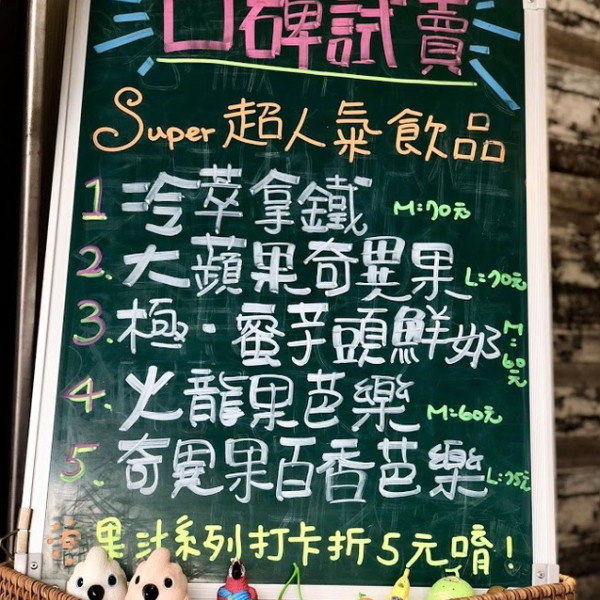 口碑試賣
Super 超人氣飲品
1 冷萃拿鐵 M=70元
2. 大蘋果奇異果 L=70元
3. 極·蜜芋頭鮮奶 M=60元
4. 火龍果芭樂 M=60元
5. 奇異果百香芭樂 L=75元
果汁系列打卡折5元唷!